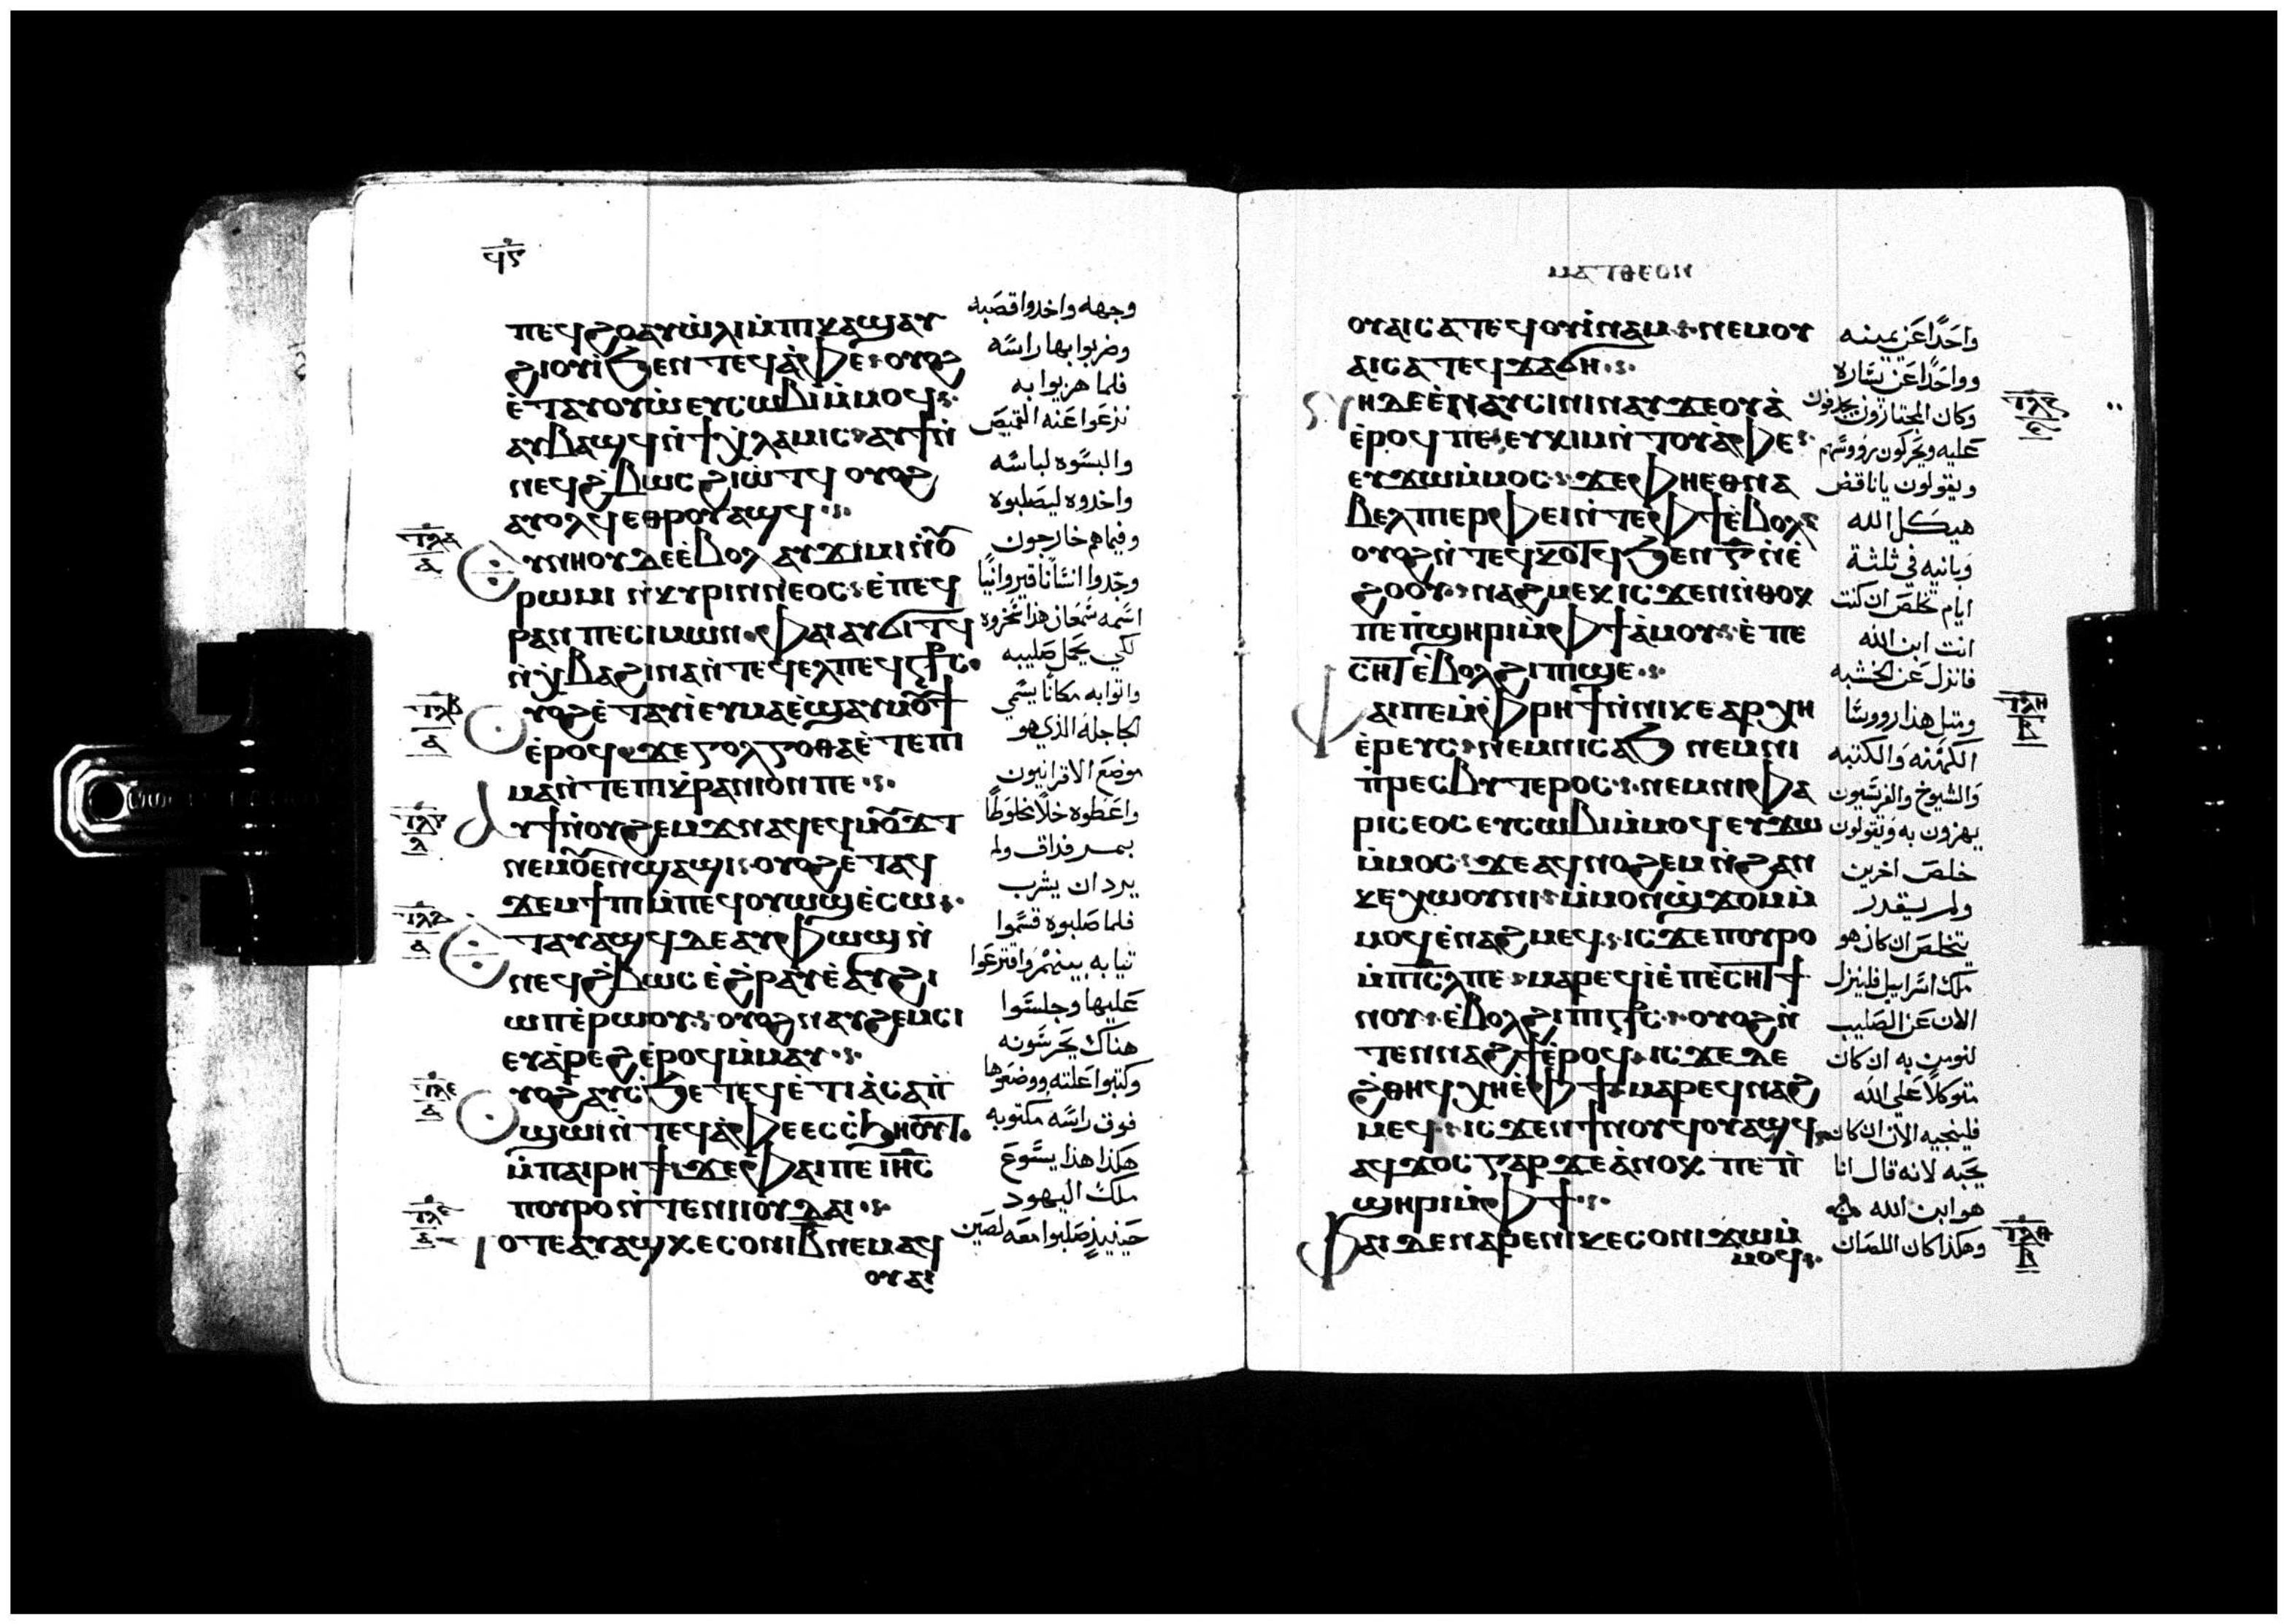 ϥ̅ⲋ̅
ⲡⲉϥϩⲟⲁⲩⲱ̀ⲗⲓⲙ̀ⲡⲓⲕⲁϣⲁⲩ
ϩⲓⲟⲩⲓ̀ϧⲉⲛⲧⲉϥⲁ̀ⲫⲉ ⲟⲩⲟϩ
ⲉ̀ⲧⲁⲩⲟⲩⲱ̀ⲉⲩⲥⲱⲃⲓⲙ̀ⲙⲟϥ
ⲁⲩⲃⲁϣϥⲛ̀ϯⲭⲗⲁⲙⲓⲥ ⲁⲩϯⲛ̀
ⲛⲉϥϩⲃⲱⲥϩⲓⲱ̀ⲧϥ ⲟⲩⲟϩ
ⲁⲩⲟⲗϥⲉⲑⲣⲟⲩⲁϣϥ
ⲉⲩⲛⲏⲟⲩⲇⲉⲉ̀ⲃⲟⲗⲁⲩϫⲓⲙⲓⲛ̀ⲟⲩ
ⲣⲱⲙⲓⲛ̀ⲕⲩⲣⲓⲛⲛⲉⲟⲥ ⲉ̀ⲡⲉϥ
ⲣⲁⲛⲡⲉⲥⲓⲙⲱⲛ ⲫⲁⲓⲁⲩϭⲓⲧϥ
ⲛ̀ⲭⲃⲁϩⲓⲛⲁⲛ̀ⲧⲉϥⲉⲗⲡⲉϥⲥ̅ⲧ̅ⲥ̅
ⲟⲩⲟϩⲉ̀ⲧⲁⲩⲓ̀ⲉⲩⲙⲁⲉ̀ϣⲁⲩⲙⲟⲩϯ
ⲉ̀ⲣⲟϥϫⲉⲅⲟⲗⲅⲟⲑⲁⲉ̀ⲧⲉⲡⲓ
ⲙⲁⲛ̀ⲧⲉⲡⲓⲕⲣⲁⲛⲓⲟⲛⲡⲉ
ⲁⲩϯⲛⲟⲩϩⲉⲙϫⲛⲁϥⲉϥⲙⲟⲩϫⲧ
ⲛⲉⲙⲟⲩⲉⲛϣⲁϣⲓ ⲟⲩⲟϩⲉ̀ⲧⲁϥ
ϫⲉⲙϯⲡⲓⲙ̀ⲡⲉϥⲟⲩⲱϣⲉ̀ⲥⲱ
ⲉⲧⲁⲩⲁϣϥⲇⲉⲁⲩⲫⲱϣⲛ̀
ⲛⲉϥϩⲃⲱⲥⲉ̀ϩⲣⲁⲩⲉ̀ⲁⲩϩⲓ
ⲱⲡⲉ̀ⲣⲱⲟⲩ ⲟⲩⲟϩⲛⲁⲩϩⲉⲙⲥⲓ
ⲉⲩⲁ̀ⲣⲉϩⲉ̀ⲣⲟϥⲙ̀ⲙⲁⲩ
ⲟⲩⲟϩⲁⲩⲥ̀ϧⲉⲧⲉϥⲉ̀ⲧⲓⲁ̀ⲥⲁⲡ̀
ϣⲱⲓⲛ̀ⲧⲉϥⲁ̀ⲫⲉⲉⲥⲥ̀ϧⲏⲟⲩⲧ
ⲙ̀ⲡⲁⲓⲣⲏϯ ϫⲉⲫⲁⲓⲡⲉⲓⲏ̅ⲥ̅
ⲡⲟⲩⲣⲟⲛ̀ⲧⲉⲛⲓⲓⲟⲩⲇⲁⲓ
ⲧⲟⲧⲉⲁⲩⲁϣⲕⲉⲥⲟⲛⲓⲃ̅ⲛⲉⲙⲁϥ
ⲟⲩⲁⲓ
وجهه واخدوا قصبه
وضربوا بها راسه
فلما هزيوا به
نزعوا عنه القميص
والبسوه لباسه
واخدوه ليصلبوه
وفيما هم خارجون
وجدوا انسانا قيروانيا
اسمه سمعان هذا سخروه
لكي يحمل صليبه
واتوا به مكانا يسمي
الجاجله الذي هو
موضع الاقرانيون
واعطوه خلا مخلوطا
بمر فداق ولم
يرد ان يشرب
فلما صلبوه قسموا
تيابه بينهم واقترعوا
عليها وجلسوا
هناك يحرسونه
وكتبوا علته ووضعوها
فوق راسه مكتوبه
هكذا هذا يسوع
ملك اليهود
حينيذ صلبوا معه لصين
ⲙⲁⲧⲑⲉⲟⲛ
ⲟⲩⲁⲓⲥⲁⲧⲉϥⲟⲩⲓ̀ⲛⲁⲙ ⲛⲉⲙⲟⲩ
ⲁⲓⲥⲁⲧⲉϥϫⲁϭⲏ
ⲛⲏⲇⲉⲉ̀ⲛⲁⲩⲥⲓⲛⲓⲛⲁⲩϫⲉⲟⲩⲁ̀
ⲉ̀ⲣⲟϥⲡⲉ ⲉⲩⲕⲓⲙⲛ̀ⲧⲟⲩⲁ̀ⲫⲉ
ⲉⲩϫⲱⲙ̀ⲙⲟⲥ ϫⲉⲫⲏⲉⲑⲛⲁ
ⲃⲉⲗⲡⲓⲉⲣⲫⲉⲓⲛ̀ⲧⲉⲫϯⲉ̀ⲃⲟⲗ
ⲟⲩⲟϩⲛ̀ⲧⲉϥⲕⲟⲧϥϧⲉⲛⲅ̅ⲛ̀ⲉ̀
ϩⲟⲟⲩ ⲛⲁϩⲙⲉⲕⲓⲥϫⲉⲛ̀ⲑⲟⲕ
ⲡⲉⲡ̀ϣⲏⲣⲓⲙ̀ⲫϯⲁ̀ⲙⲟⲩ ⲉ̀ⲡⲉ
ⲥⲏⲧⲉ̀ⲃⲟⲗϩⲓⲡⲓϣⲉ
ⲫⲁⲓⲡⲉⲙ̀ⲫⲣⲏϯⲛ̀ⲛⲓⲕⲉⲁⲣⲭⲏ
ⲉ̀ⲣⲉⲩⲥ ⲛⲉⲙⲛⲓⲥⲁϧ ⲛⲉⲙⲛⲓ
ⲡ̀ⲣⲉⲥⲃⲩⲧⲉⲣⲟⲥ ⲛⲉⲙⲛⲓⲫⲁ
ⲣⲓⲥⲉⲟⲥⲉⲩⲥⲱⲃⲓⲙ̀ⲙⲟϥⲉⲩϫⲱ
ⲙ̀ⲙⲟⲥ ϫⲉⲁϥⲛⲟϩⲉⲙⲛ̀ϩⲁⲛ
ⲕⲉⲭⲱⲟⲩⲛⲓ ⲙ̀ⲙⲟⲛϣϫⲟⲙⲙ̀
ⲙⲟϥⲉ̀ⲛⲁϩⲙⲉϥ ⲓⲥϫⲉⲡⲟⲩⲣⲟ
ⲙ̀ⲡⲓ̅ⲥ̅ⲗⲡⲉ ⲙⲁⲣⲉϥⲓ̀ⲉ̀ⲡⲉⲥⲏⲧϯ
ⲛⲟⲩ ⲉ̀ⲃⲟⲗϩⲓⲡⲓⲥ̅ⲧ̅ⲥ̅ ⲟⲩⲟϩⲛ̀
ⲧⲉⲛⲛⲁϩϯⲉ̀ⲣⲟϥ ⲓⲥϫⲉⲇⲉ
ϩ̀ⲑⲏϥⲭⲏⲉ̀ⲫϯⲙⲁⲣⲉϥⲛⲁϩ
ⲙⲉϥ ⲓⲥϫⲉⲛϯⲛⲟⲩϥⲟⲩⲁϣϥ
ⲁϥϫⲟⲥⲅⲁⲣϫⲉⲁ̀ⲛⲟⲕ ⲡⲉⲡ̀
ϣⲏⲣⲓⲙ̀ⲫϯ
ⲫⲁⲓⲇⲉⲛⲁⲣⲉⲛⲓⲕⲉⲥⲟⲛⲓϫⲱⲙ̀
ⲙⲟϥ
واحدا عن يمينه
وواحدا عن يساره
وكان المجتازون يجدفون
عليه ويحركون رووسهم
ويقولون يا ناقض
هيكل الله
وبانيه في ثلثة
ايام تخلص ان كنت
انت ابن الله
فانزل عن الخشبه
ومتل هذا رووسا
الكهنه والكتبه
والشيوخ والفريسيون
يهزون به ويقولون
خلص اخرين
ولم يقدر
يتخلص ان كان هو
ملك اسراييل فلينزل
الان عن الصليب
لنومن به ان كان
متوكلا علي الله
فلينجيه الان ان كان
يحبه لانه قال انا
هو ابن الله
وهكذا كان اللصان